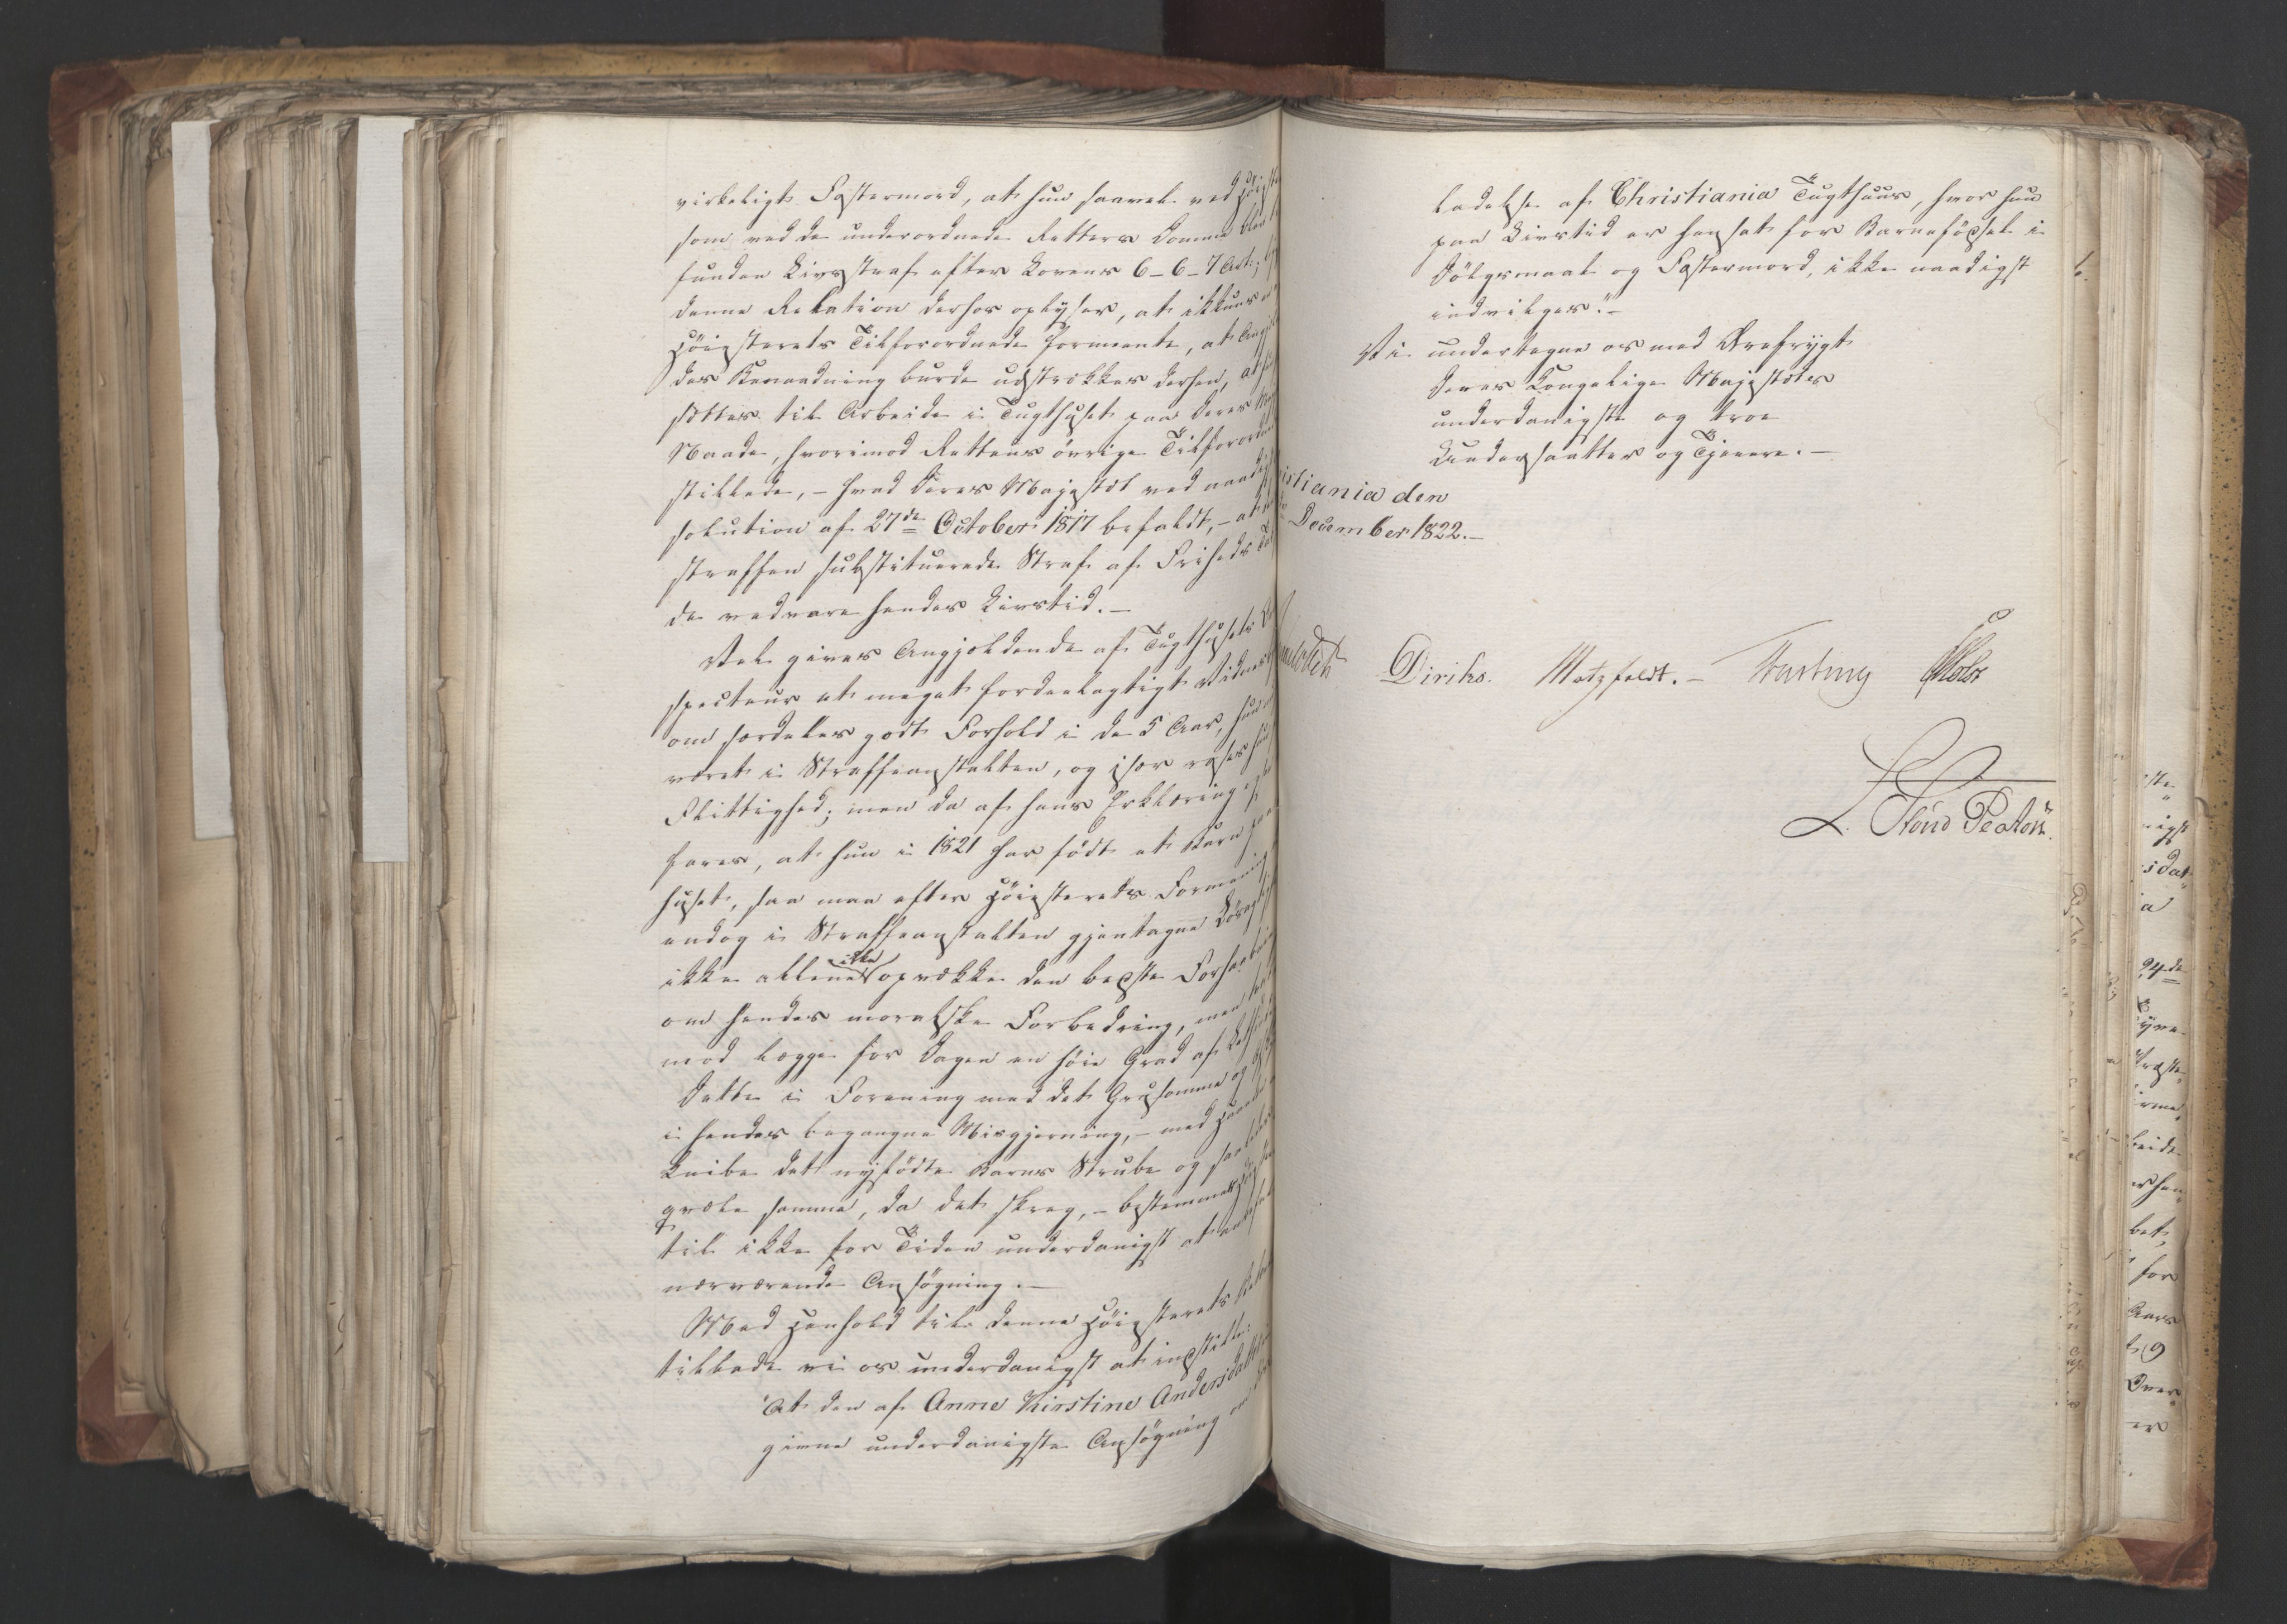 virkeligt Fostermord, at hun saavel ved Höieste
som ved de underordnede Retters Domme blev
funden Livsstraf efter Lovens 6-6-7 Art.;
denne Relation derhos oplyser, at ikkuns en
Höiesterets Tilforordnede formeente, at Angjel
des Benaadning burde udstrækkes derhen, at hen
sættes til Arbeide i Tugthuset paa Deres
Naade, hvorimod Rettens övrige Tilforordn
stillede, - hvad Deres Majestæt ved naadigst
solution af 27de October 1817 befaldt, - at
straffen substituerede Straf af Friheds Tab
de vedvare hendes Livstid. -
Vel gives Angjeldende af Tugthusets
specteur et meget fordeelagtigt Vidnes
om særdeles godt Forhold i de 5 Aar, hun
været i Straffeanstalten, og især roses hun
Flittighed; men da af hans Erklæring
fares, at hun i 1821 har födt et Barn paa
huset, saa maa efter Höiesterets Formening
endog i Straffeanstalten gjentagne Lösag
ikke allene ikke opvække den bedste Forhaabning
om hendes moralske Forbedring, men
mod lægge for Dagen en höie Grad af Letsind
Dette i Forening med det Grusomme og
i hendes begangne Misgjerning, - med Haand
knibe det nyfödte Barns Strube og saaledes
qvæle samme, da det skreg, - bestemmer
til ikke for Tiden underdanigst at anbefale
nærværende Ansögning. -
Med Henhold til denne Höiesterets
tillade vi os underdanigst at indstille:
"At den af Anne Kirstine Andersdatter
givne underdanigste Ansögning om
ladelse af Christiania Tugthuus, hvor hun
paa Livstid er hensat for Barneföd­sel i
Dölgsmaal og Fostermord, ikke naadigst
indvilges." -
Vi undertegne os med Ærefrygt
Deres Kongelige Majestæts
underdanigste og troe
Undersaatter og Tjenere. -
istiania den
December 1822. -
Diriks. Motzfeldt. - Fasting Holst
L. Stoud Platou.